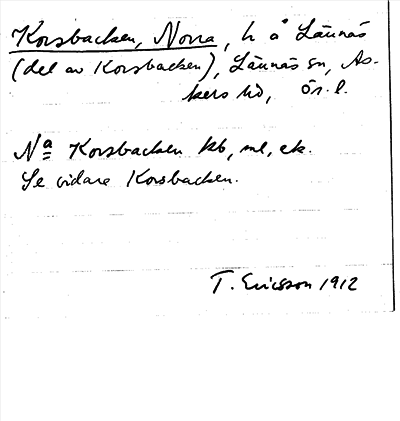 Korsbacken, Norra, h å Lännäs
(del av Korsbacken), Lännäs sn, As-
kers hd, Ör. l.
Nᵃ Korsbacken kb, ml, ek.
Se vidare Korsbacken.
T. Ericsson 1912